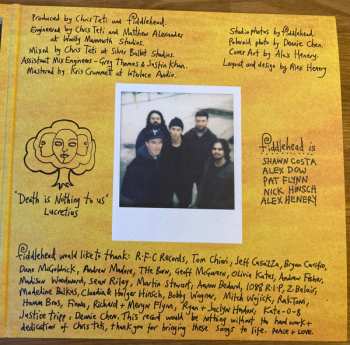 Produced by Chris Teti and Fiddlehead.
Engineered by Chris Teti and Matthew Alexander
at Woolly Mammoth Studios.
Mixed by Chris Teti at Silver Bullet Studios.
Assistant Mix Engineers - Greg Thomas & Justin Khan.
Mastered by Kris Crummett at Interlace Audio.
Studio photos by fiddlehead.
Polaroid photo by Deanie Chen.
Cover Art by Alex Henery.
Layout and design by Alex Henery
"Death is Nothing to us"
Lucretius
fiddlehead is
SHAWN COSTA
ALEX DOW
PAT FLYNN
NICK HINSCH
ALEX HENERY
fiddlehead would like to thank: R.F.C Records, Tom Chiari, Jeff Casazza, Bryan
Dan McGoldrick, Andrew Madore, THE Bern, Geoff McGovern, Olivia Kates, Andrew Fisher,
Madison Woodward, Sean Riley, Martin Stewart, Aaron Dedard, 1088 R.I.P, Z. Belair,
Madeline Balkus, Claudia & Holger Hinsch, Bobby Wagner, Mitch Wojcik,
Human Bros, Finons, Richard + Meryn Flynn, Ryan + Jaclyn Hudon, Kate-0-8
Justice tripp, Deanie Chen. This record would be nothing without the hard work +
dedication of Chris Teti, thank you for bringing these songs to life. peace + love.